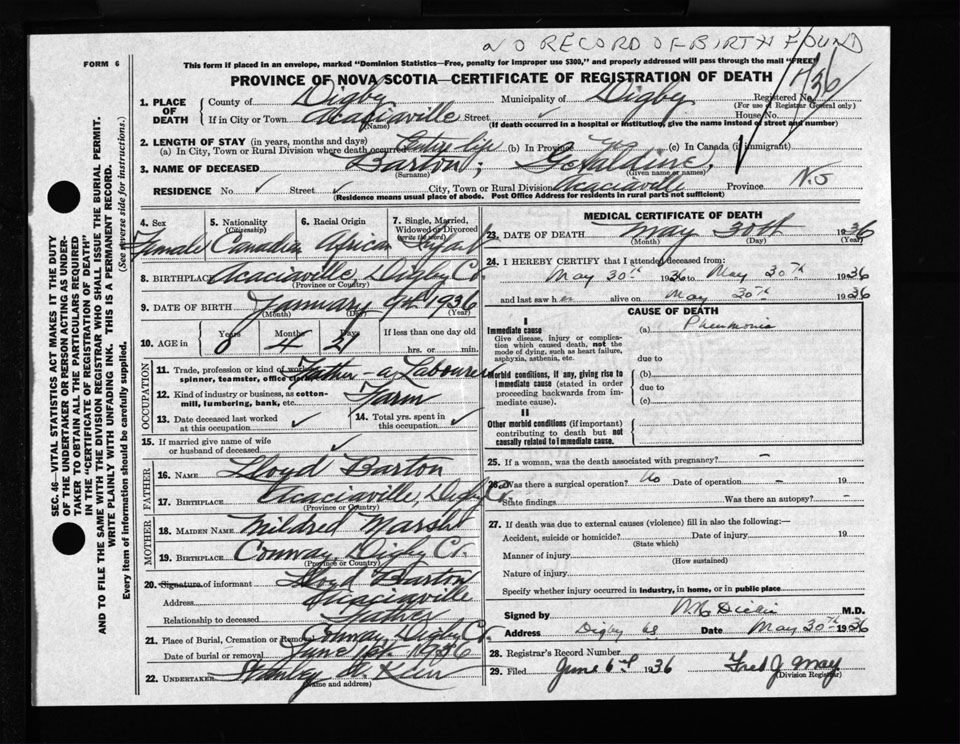 NO RECORD OF BIRTH FOUND
FORM 6
This form if placed in an envelope, marked "Dominion Statistics—Free, penalty for improper use $300," and properly addressed will pass through the mail "FREE"
PROVINCE OF NOVA SCOTIA—CERTIFICATE OF REGISTRATION OF DEATH
1. PLACE OF DEATH
County of Digby Municipality of Digby Registered No.
(For use of Registrar General only)
If in City or Town Acaciaville Street House No.
(Name) (If death occurred in a hospital or institution, give the name instead of street and number)
2. LENGTH OF STAY (in years, months and days)
(a) In City, Town or Rural Division where death occurred Entire life (b) In Province (c) In Canada (if immigrant)
3. NAME OF DECEASED Barton, Geraldine
(Surname) (Given name or names)
RESIDENCE No. ✓ Street ✓ City, Town or Rural Division Acaciaville Province N.S
(Residence means usual place of abode. Post Office Address for residents in rural parts not sufficient)
4. Sex 5. Nationality (Citizenship) 6. Racial Origin 7. Single, Married, Widowed or Divorced (write the word)
Female Canadian African
8. BIRTHPLACE Acaciaville, Digby Co.
(Province or Country)
9. DATE OF BIRTH January 9th 1936
(Month) (Year)
10. AGE in Years Months Days If less than one day old
0 4 21 hrs. or min.
OCCUPATION
11. Trade, profession or kind of work
spinner, teamster, office clerk Father - a Labourer
12. Kind of industry or business, as cotton-mill, lumbering, bank, etc. Farm
13. Date deceased last worked at this occupation ✓ 14. Total yrs. spent in this occupation ✓
15. If married give name of wife or husband of deceased ✓
FATHER
16. NAME Lloyd Barton
17. BIRTHPLACE Acaciaville, Digby Co.
(Province or Country)
MOTHER
18. MAIDEN NAME Mildred Marsh
19. BIRTHPLACE Conway Digby Co.
(Province or Country)
20. Signature of informant Lloyd Barton
Address Acaciaville
Relationship to deceased Father
21. Place of Burial, Cremation or Removal Conway Digby Co.
Date of burial or removal June 1st 1936
22. UNDERTAKER Stanley
(Name and address)
MEDICAL CERTIFICATE OF DEATH
23. DATE OF DEATH May 30th 1936
(Month) (Day) (Year)
24. I HEREBY CERTIFY that I attended deceased from:
May 30th 1936 to May 30th 1936
and last saw her alive on May 30th 1936
CAUSE OF DEATH
I
Immediate cause
Give disease, injury or complication which caused death, not the mode of dying, such as heart failure, asphyxia, asthenia, etc.
(a) Pneumonia
due to
Morbid conditions, if any, giving rise to immediate cause (stated in order proceeding backwards from immediate cause).
(b)
due to
(c)
II
Other morbid conditions (if important) contributing to death but not causally related to immediate cause.
25. If a woman, was the death associated with pregnancy? –
26. Was there a surgical operation? No Date of operation – 19
State findings Was there an autopsy? –
27. If death was due to external causes (violence) fill in also the following:—
Accident, suicide or homicide? Date of injury 19
(State which)
Manner of injury
(How sustained)
Nature of injury
Specify whether injury occurred in industry, in home, or in public place
Signed by M.D.
Address Digby NS Date May 30th 1936
28. Registrar's Record Number
29. Filed June 6th 1936 Fred J. May
(Division Registrar)
SEC. 46—VITAL STATISTICS ACT MAKES IT THE DUTY
OF THE UNDERTAKER OR PERSON ACTING AS UNDER-
TAKER TO OBTAIN ALL THE PARTICULARS REQUIRED
IN THE "CERTIFICATE OF REGISTRATION OF DEATH"
AND TO FILE THE SAME WITH THE DIVISION REGISTRAR WHO SHALL ISSUE THE BURIAL PERMIT.
WRITE PLAINLY WITH UNFADING INK. THIS IS A PERMANENT RECORD.
Every item of information should be carefully supplied. (See reverse side for instructions.)